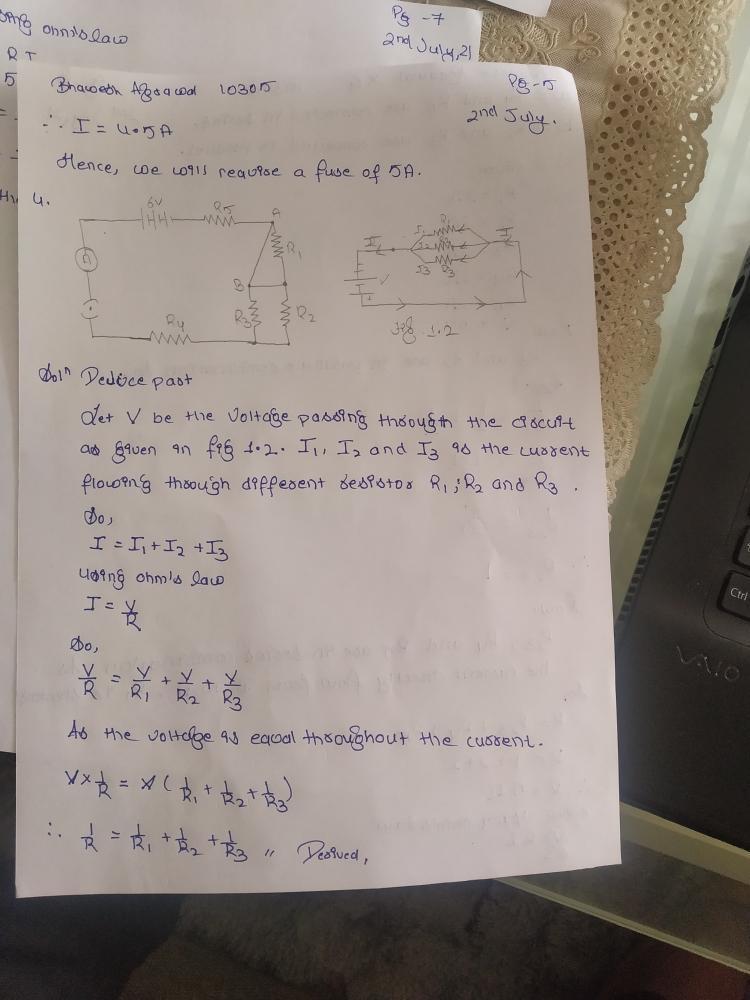 ohm's law
Pg - 7
2nd July, 21
R I
5
Bhawesh Agrawal 10305
Pg - 5
2nd July.
∴ I = 4.5A
Hence, we will require a fuse of 5A.
4.
6V R5 A
R1
A
B
R3 R2
R4
I1 R1
I I2 R2 I
I3 R3
fig 1.2
Solⁿ Deduce part
Let V be the Voltage passing through the circuit
as given in fig 1.2. I1, I2 and I3 is the current
flowing through different resistor R1, R2 and R3.
So,
I = I1 + I2 + I3
using ohm's law
I = V/R
So,
V/R = V/R1 + V/R2 + V/R3
As the voltage is equal throughout the current.
V × 1/R = V (1/R1 + 1/R2 + 1/R3)
∴ 1/R = 1/R1 + 1/R2 + 1/R3 // Derived,
Ctrl
VAIO